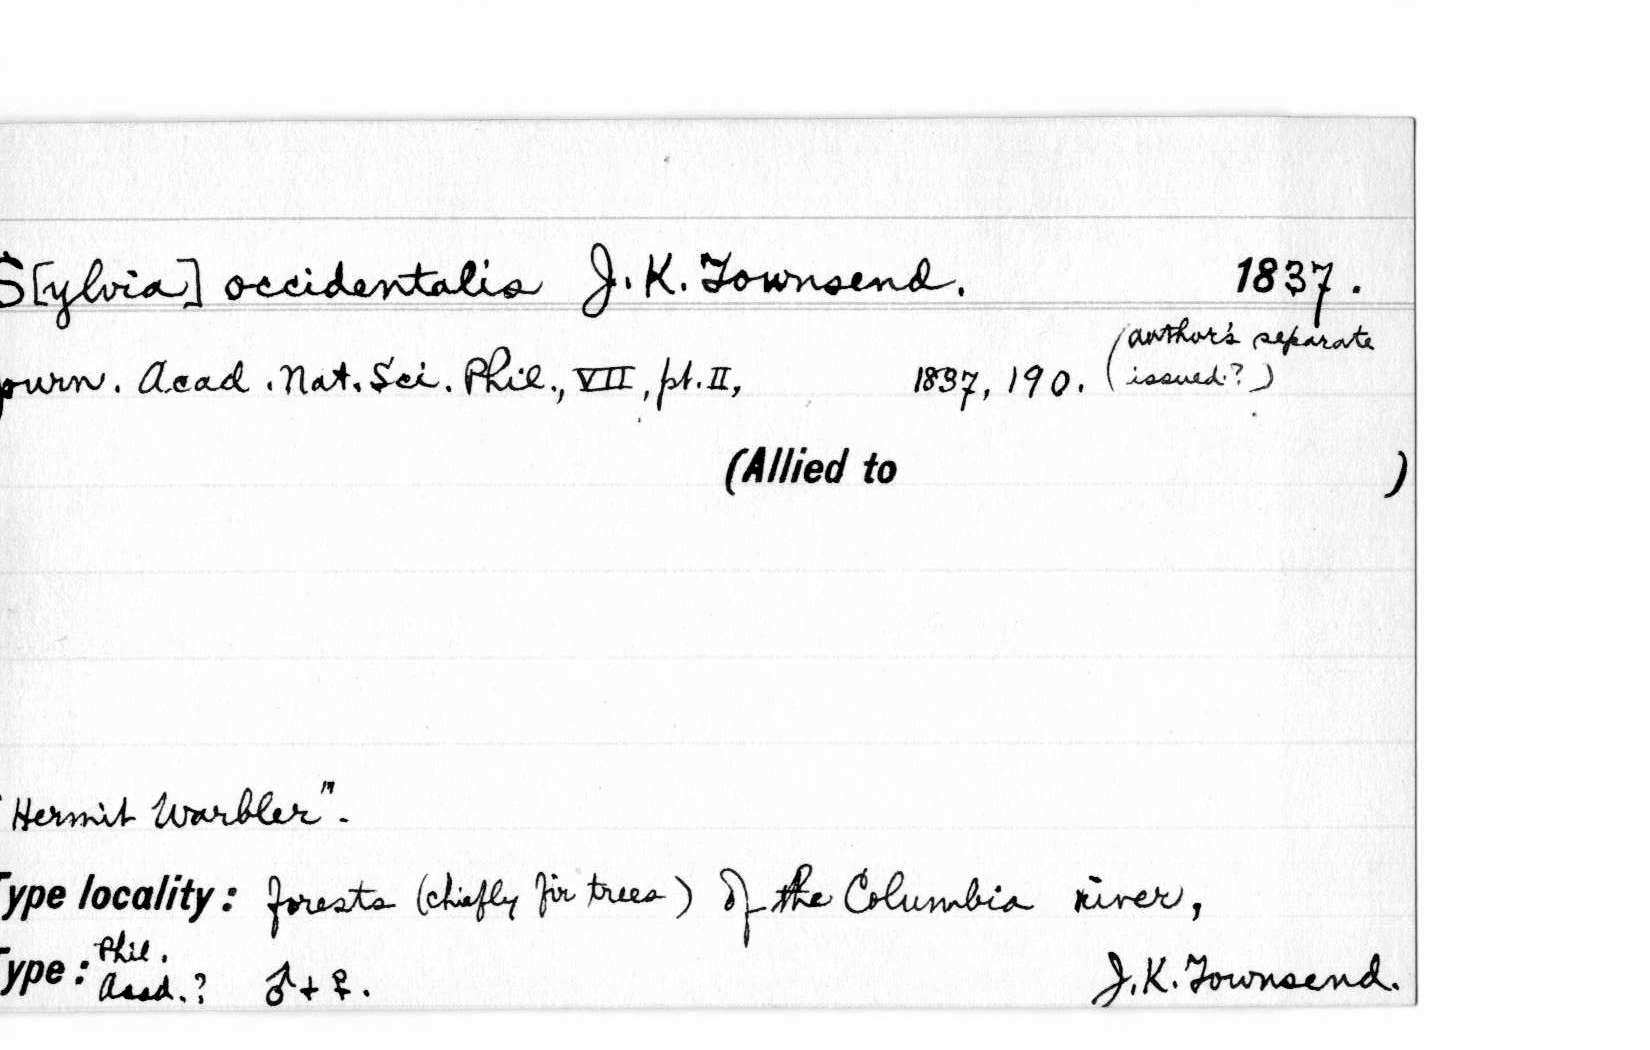 S[ylvia] occidentalis J. K. Townsend. 1837.
ourn. Acad. Nat. Sci. Phil., VII, pt. II, 1837, 190. (author's separate
issued?)
(Allied to )
"Hermit Warbler".
Type locality: forests (chiefly fir trees) of the Columbia river,
Type: Phil.
Acad.? ♂ + ♀. J. K. Townsend.